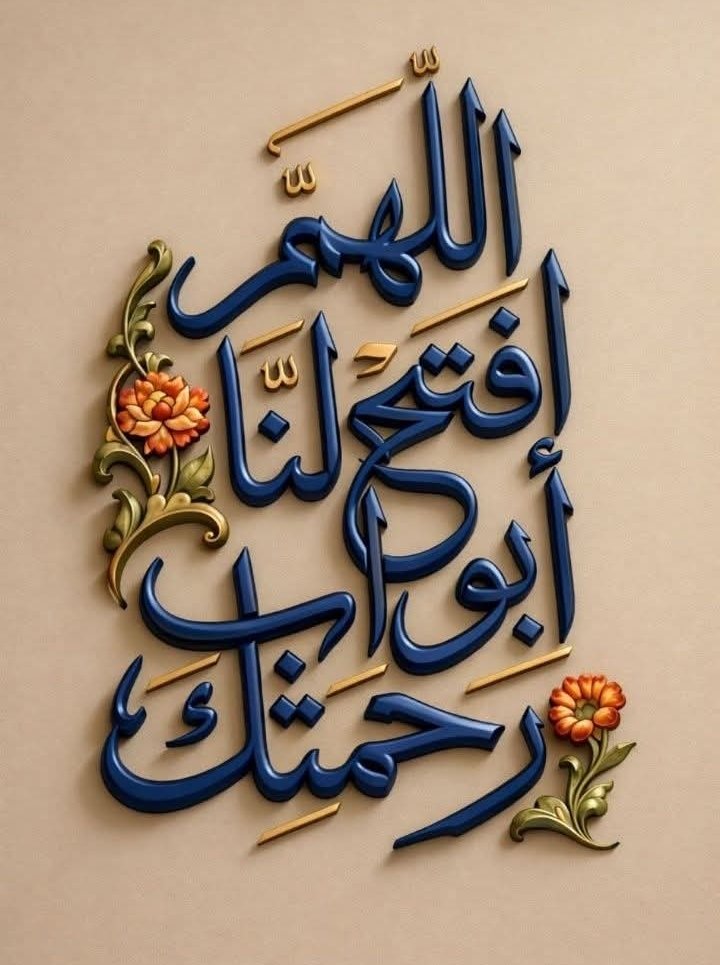 اللَّهمَّ
افتحْ لنَّا
أبواب
رحمتِك